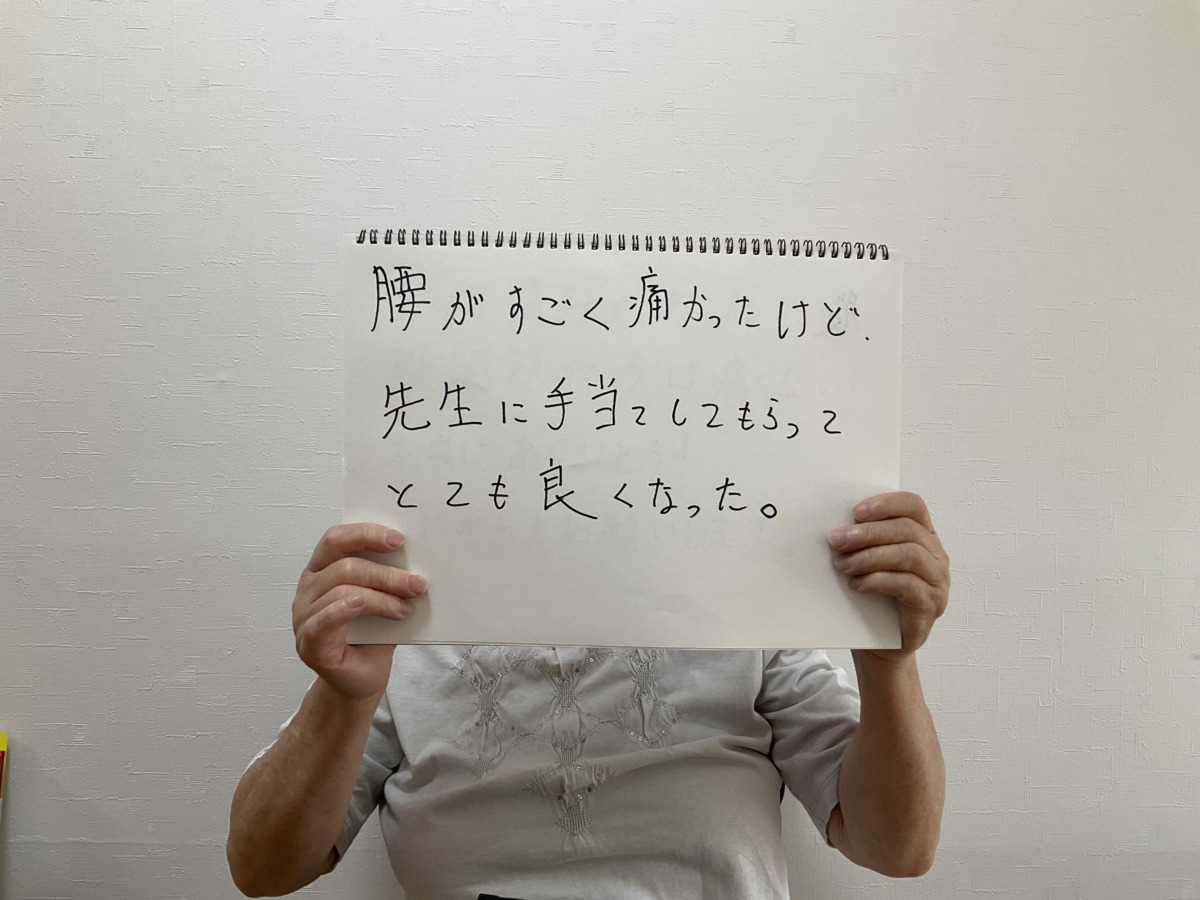 腰がすごく痛かったけど、
先生に手当てしてもらって
とても良くなった。